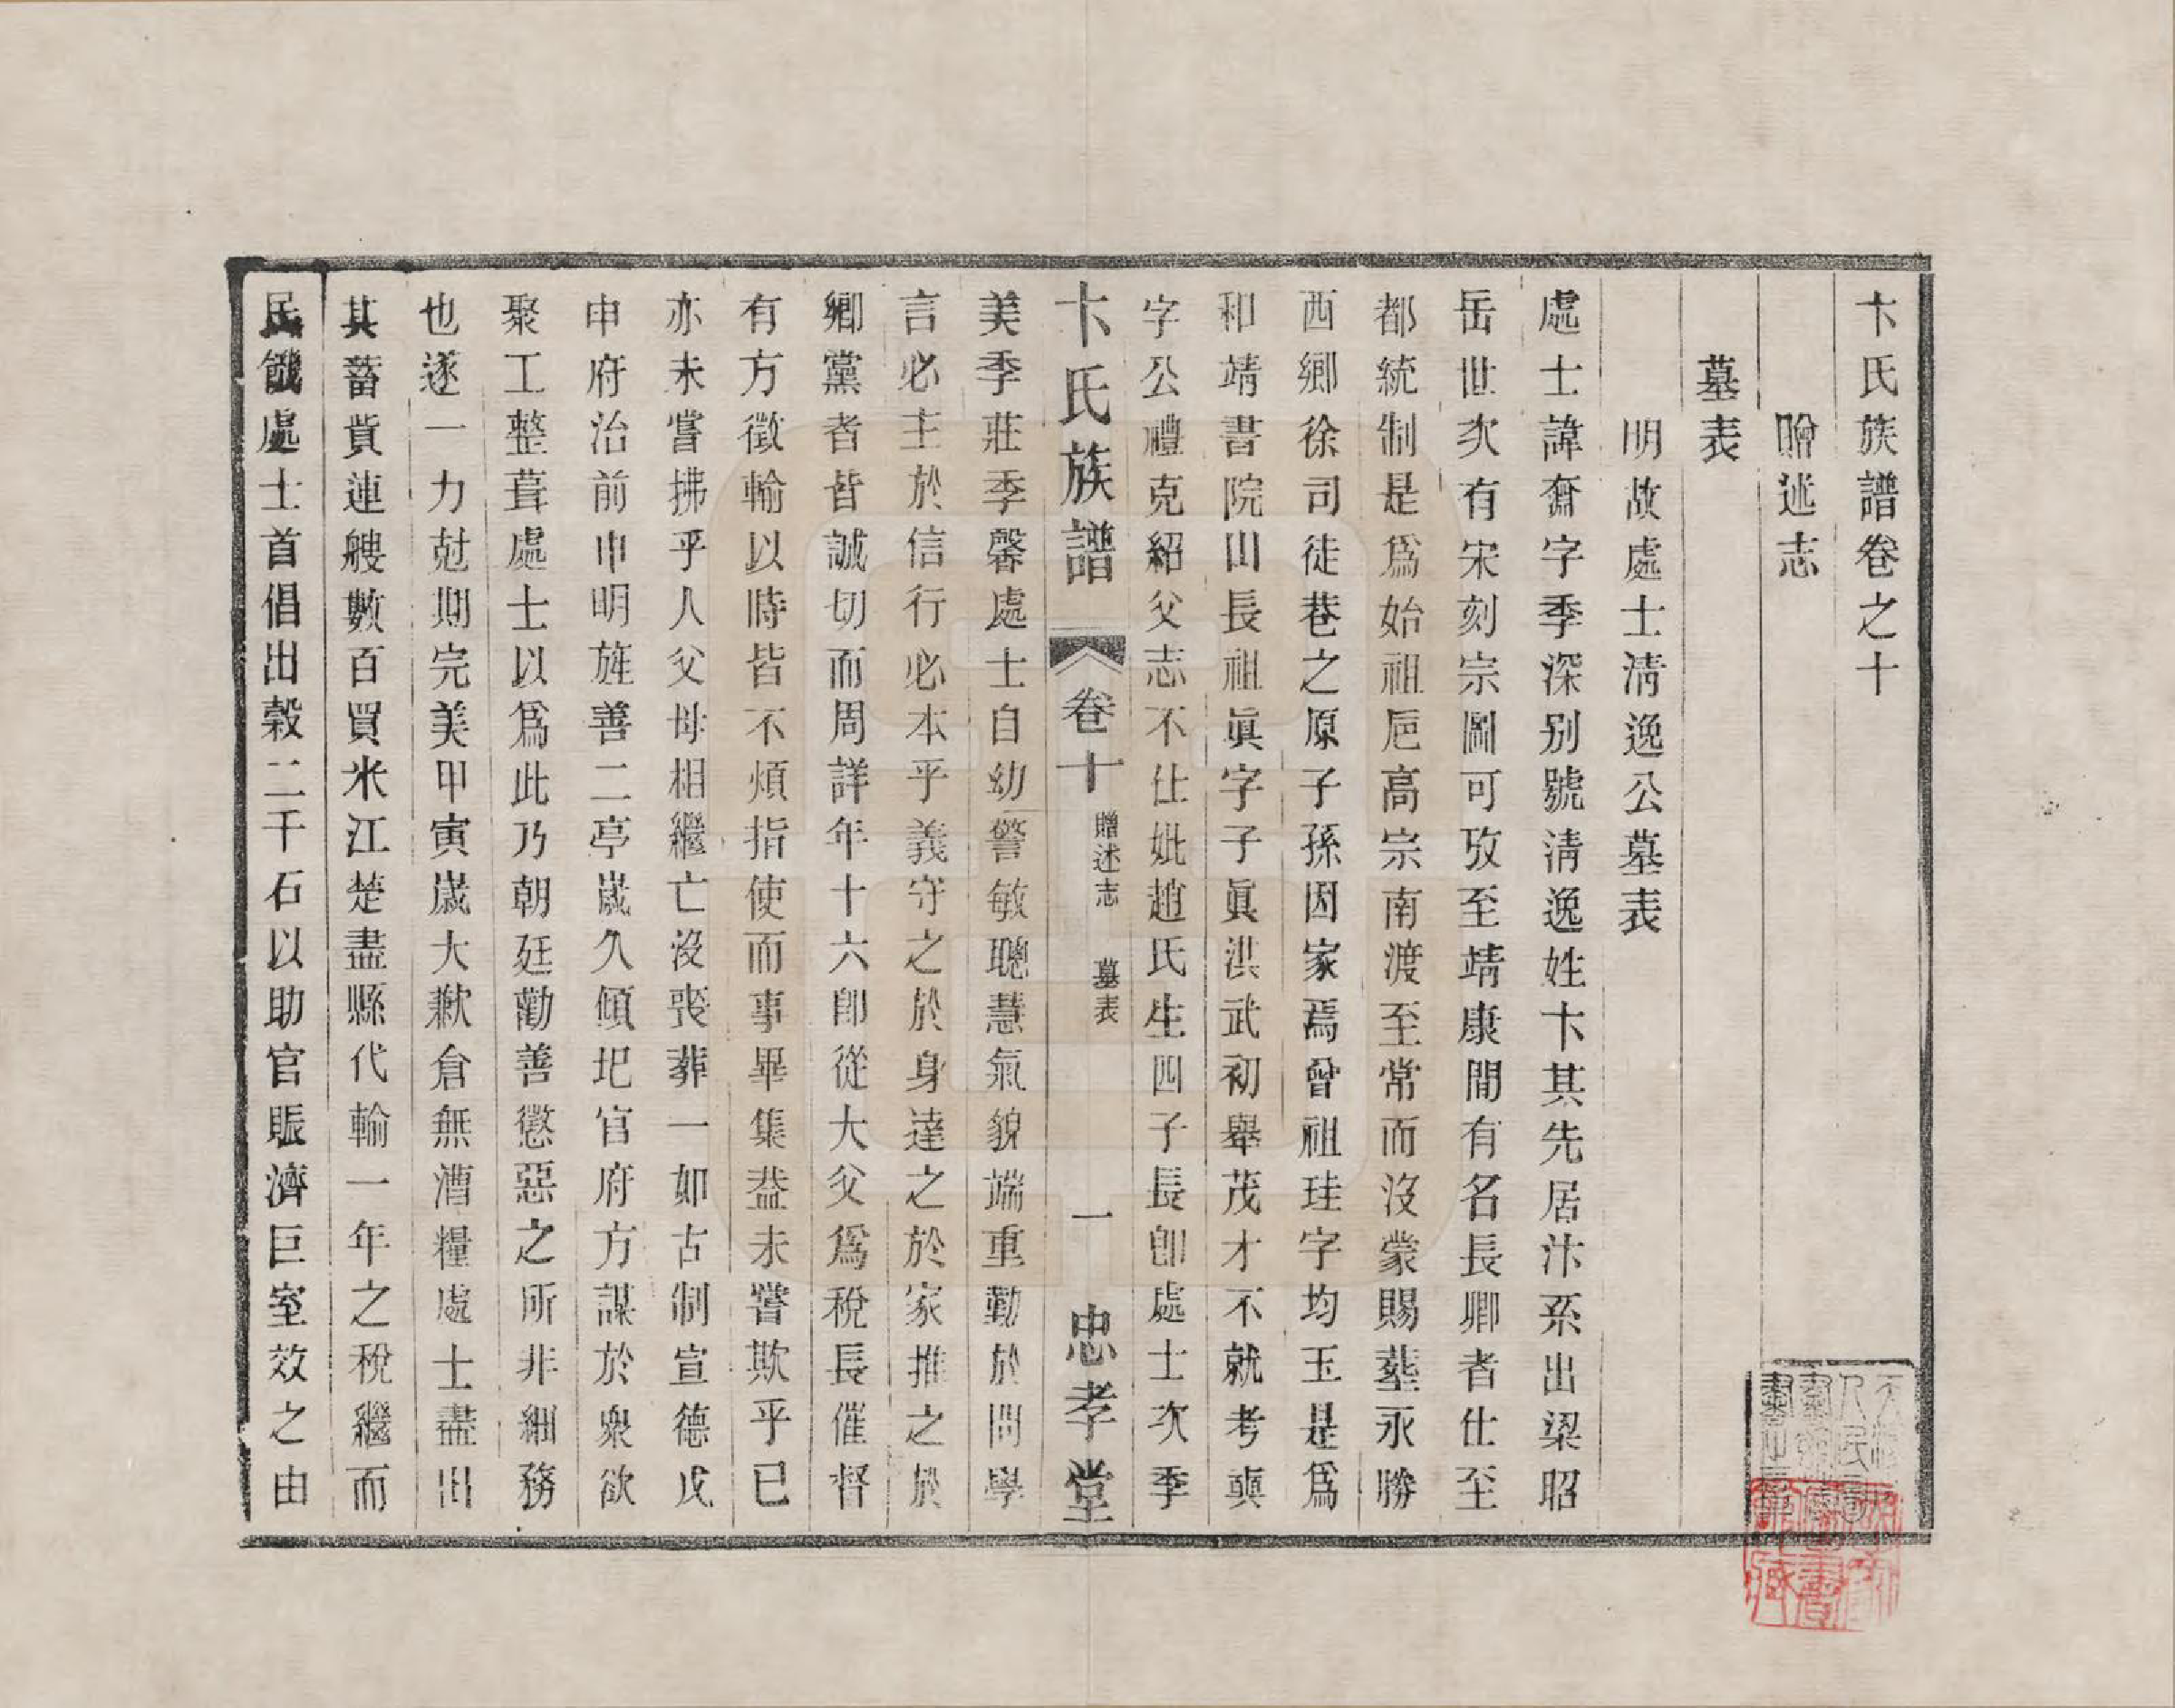 卞氏族譜卷之十
贈述志
墓表
明故處士淸逸公墓表
處士諱奫字季深别號淸逸姓卞其先居汴系出梁昭
岳世次有宋刻宗圖可攷至靖康間有名長卿者仕至
都統制是爲始祖扈高宗南渡至常而沒蒙賜塟永勝
西鄉徐司徒巷之原子孫因家焉曾祖珪字均玉是爲
和靖書院山長祖眞字子眞洪武初舉茂才不就考奭
字公禮克紹父志不仕妣趙氏生四子長卽處士次季
卞氏族譜
卷十
贈述志 墓表
一
忠孝堂
美季莊季馨處士自幼警敏聰慧氣貌端重勤於問學
言必主於信行必本乎義守之於身達之於家推之於
鄉黨者皆誠切而周詳年十六卽從大父爲稅長催督
有方徵輸以時皆不煩指使而事畢集益未嘗欺乎已
亦未嘗拂乎人父母相繼亡沒喪葬一如古制宣德戊
申府治前申明旌善二亭歲久傾圯官府方謀於衆欲
聚工整葺處士以爲此乃朝廷勸善懲惡之所非細務
也遂一力尅期完美甲寅歲大歉倉無漕糧處士盡出
其蓄貲連艘數百買米江楚盡縣代輸一年之稅繼而
民饑處士首倡出穀二千石以助官賑濟巨室效之由